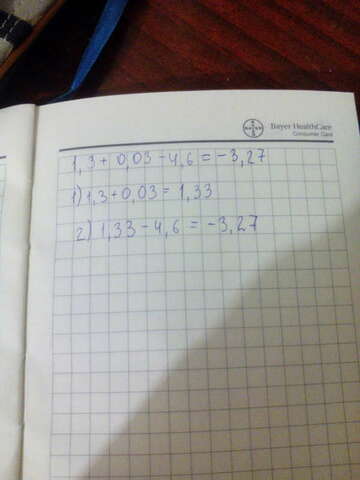 BAYER
Bayer HealthCare
Consumer Care
1,3 + 0,03 - 4,6 = -3,27
1) 1,3 + 0,03 = 1,33
2) 1,33 - 4,6 = -3,27